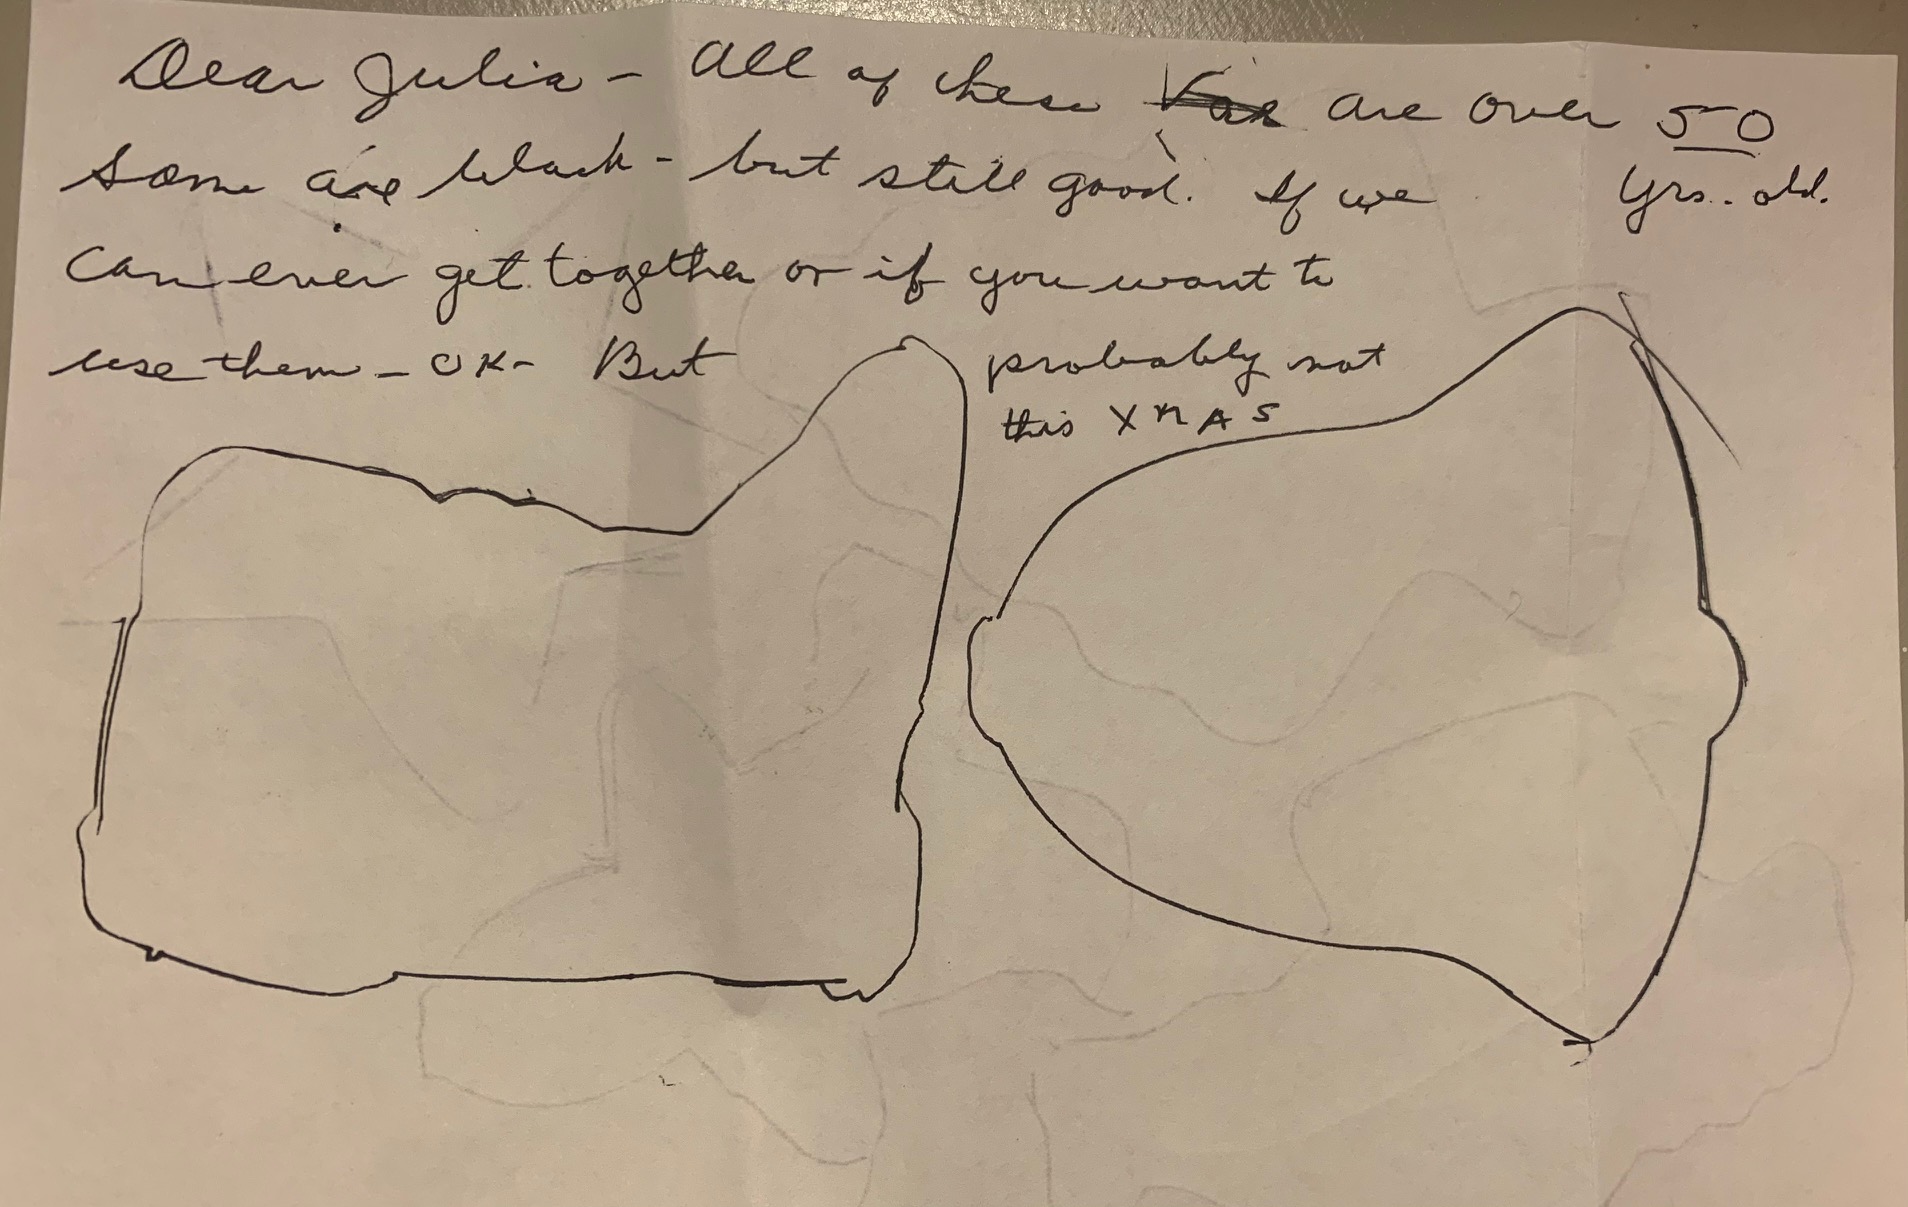 Dear Julia - All of these are over 50
yrs. old.
some are black - but still good. If we
can ever get together or if you want to
use them - OK - But probably not
this XMAS